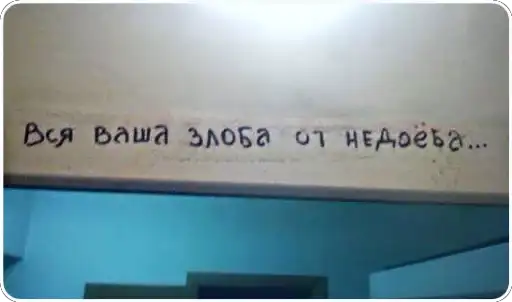 Вся ваша злоба от недоёба...